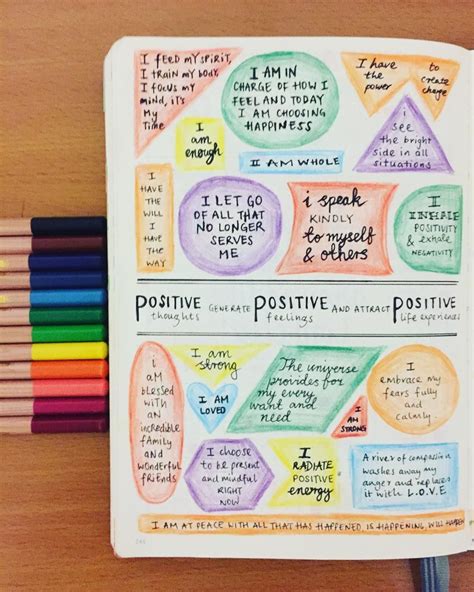 I FEED MY SPIRIT,
I TRAIN MY BODY,
I FOCUS MY
MIND, IT'S
MY
TIME
I AM IN
CHARGE OF HOW I
FEEL AND TODAY
I AM CHOOSING
HAPPINESS
I HAVE
the
POWER
to
create
change
I
am
enough
I AM WHOLE
i
see
the bright
side in all
situations
I
HAVE
THE
WILL
I
HAVE
THE
WAY
I LET GO
OF ALL THAT
NO LONGER
SERVES
ME
i speak
KINDLY
to myself
& others
I
INHALE
POSITIVITY
& EXHALE
NEGATIVITY
POSITIVE GENERATE POSITIVE AND ATTRACT POSITIVE
thoughts feelings life experiences
i
am
blessed
with
an
incredible
family
and
wonderful
friends
I am
strong
I AM
LOVED
The universe
provides for
my every
want and
need
I
AM
STRONG
I
embrace my
fears fully
and
calmly.
I choose
to be present
and mindful
RIGHT
NOW
I
RADIATE
POSITIVE
energy
A river of compassion
washes away my
anger and replaces
it with L.O.V.E.
I AM AT PEACE WITH ALL THAT HAS HAPPENED, IS HAPPENING, WILL HAPPEN